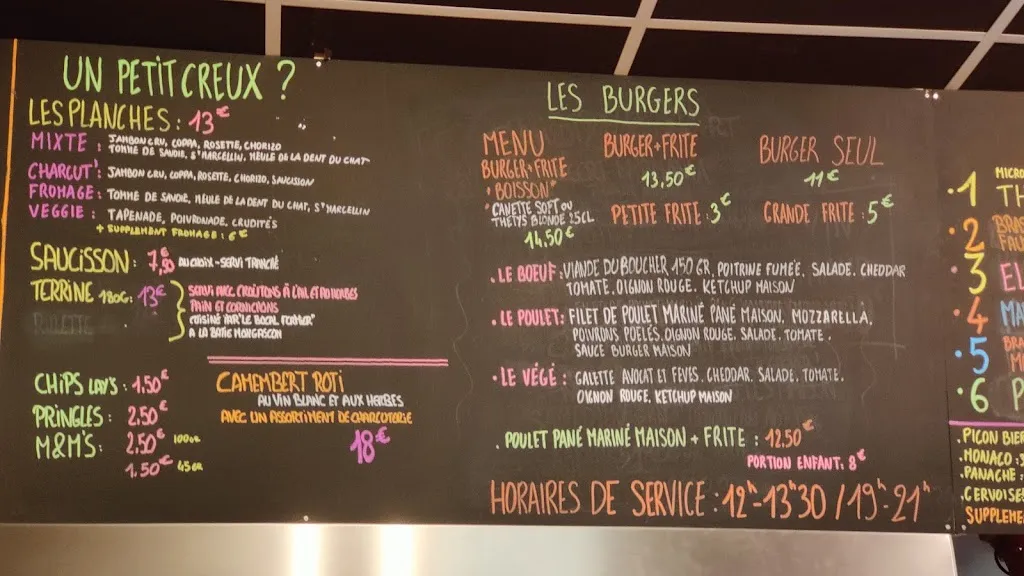 UN PETIT CREUX ?
LES PLANCHES : 13€
MIXTE : JAMBON CRU, COPPA, ROSETTE, CHORIZO
TOMME DE SAVOIE, St MARCELLIN, MEULE DE LA DENT DU CHAT
CHARCUT' : JAMBON CRU, COPPA, ROSETTE, CHORIZO, SAUCISSON
FROMAGE : TOMME DE SAVOIE, MEULE DE LA DENT DU CHAT, St MARCELLIN
VEGGIE : TAPENADE, POIVRONADE, CRUDITÉS
+ SUPPLEMENT FROMAGE : 6€
SAUCISSON : 7,50€ AU CHOIX - SERVI TRANCHÉ
TERRINE 180G : 13€
SERVI AVEC CROÛTONS À L'AIL ET AUX HERBES
PAIN ET CORNICHONS
CUISINÉ PAR "LE BOCAL FERMIER"
A LA BATIE MONGASCON
CHIPS LAY'S : 1.50€
PRINGLES : 2.50€
M&M'S : 2.50€ 100GR
1.50€ 45GR
CAMEMBERT ROTI
AU VIN BLANC ET AUX HERBES
AVEC UN ASSORTIMENT DE CHARCUTERIE
18€
LES BURGERS
MENU
BURGER+FRITE
+ BOISSON*
* CANETTE SOFT OU
THETYS BLONDE 25CL
14.50€
BURGER+FRITE
13,50€
BURGER SEUL
11€
PETITE FRITE : 3€
GRANDE FRITE : 5€
. LE BOEUF : VIANDE DU BOUCHER 150 GR, POITRINE FUMÉE. SALADE. CHEDDAR
TOMATE. OIGNON ROUGE. KETCHUP MAISON
. LE POULET : FILET DE POULET MARINÉ PÂNÉ MAISON, MOZZARELLA,
POIVRONS POELÉS. OIGNON ROUGE. SALADE. TOMATE.
SAUCE BURGER MAISON
. LE VÉGÉ : GALETTE AVOCAT ET FEVES. CHEDDAR. SALADE. TOMATE.
OIGNON ROUGE. KETCHUP MAISON
. POULET PANÉ MARINÉ MAISON + FRITE : 12.50€
PORTION ENFANT : 8€
HORAIRES DE SERVICE : 12h-13h30 / 19h-21h
MICRO
.1 TH
.2 BRAS
.3 EL
.4 MA
.5 BRA
.6 P
. PICON BIER
. MONACO :
. PANACHE :
. CERVOISE
SUPPLEME